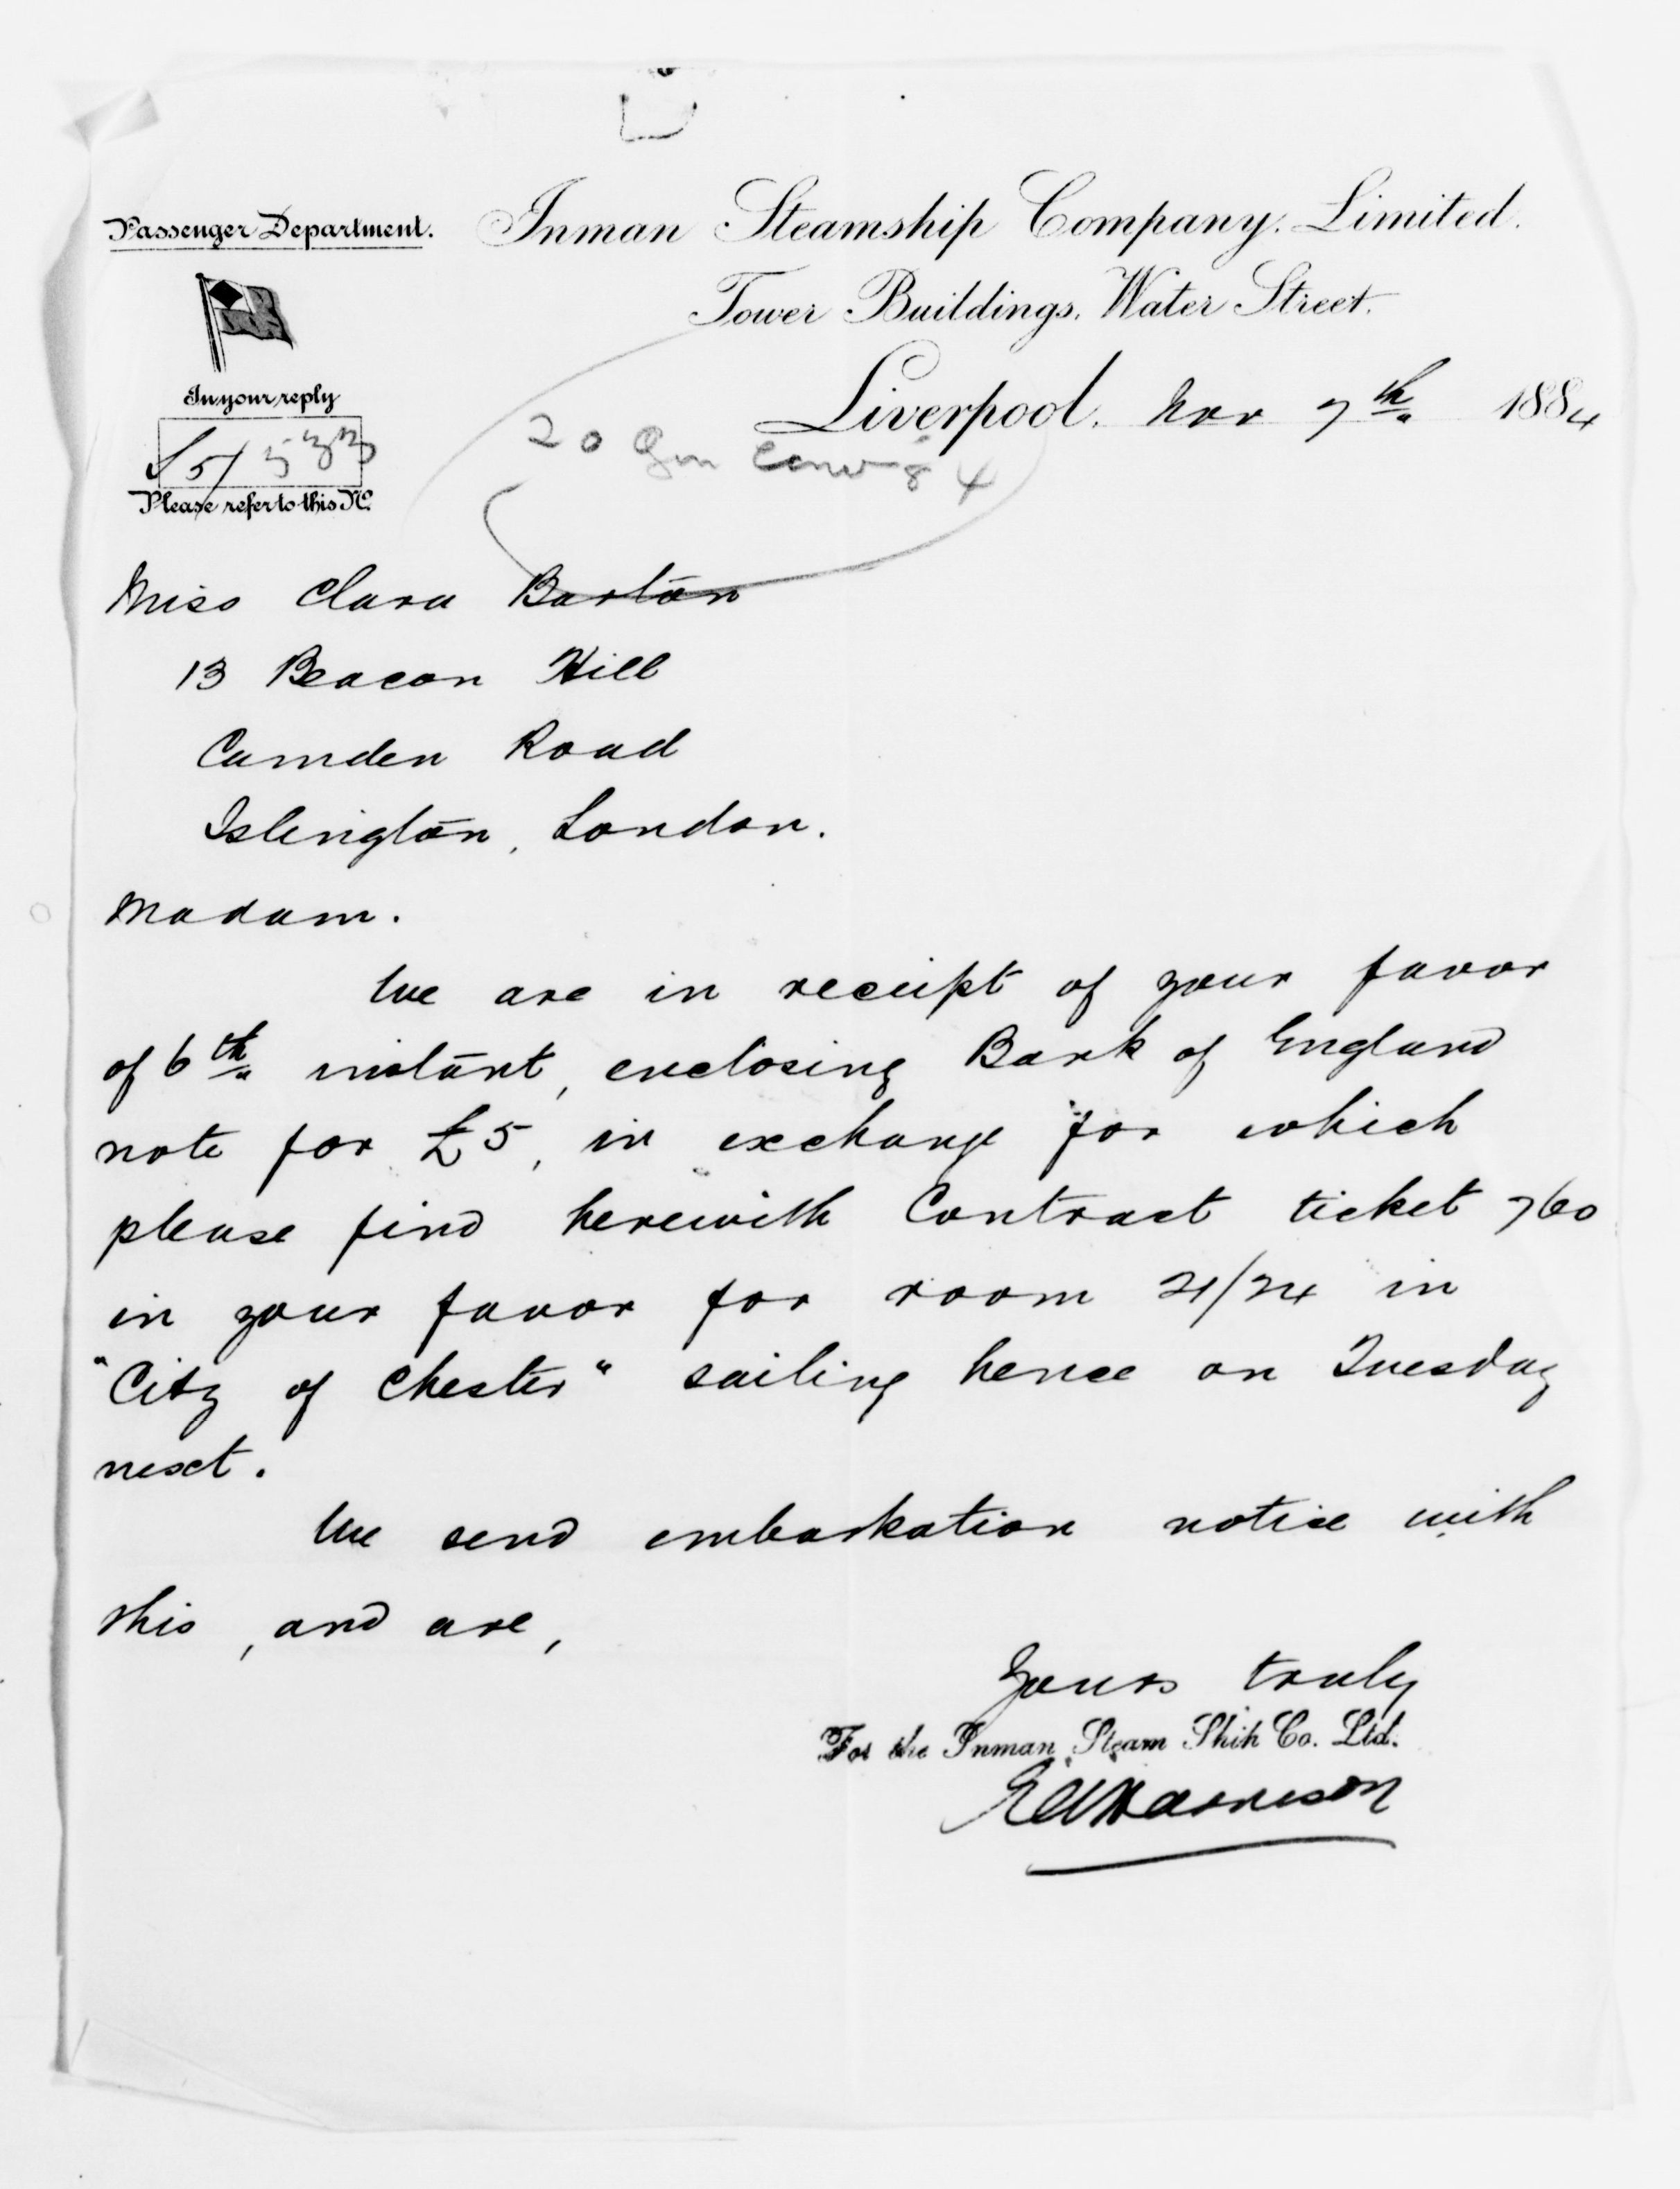 Passenger Department. Inman Steamship Company. Limited.
Tower Buildings. Water Street.
Liverpool. Nov 7th 1884
In your reply
Please refer to this No.
20 Gen Conv 84
Miss Clara Barton
13 Beacon Hill
Camden Road
Islington, London.
Madam.
We are in receipt of your favor
of 6th instant, enclosing Bank of England
note for £5, in exchange for which
please find herewith Contract ticket 760
in your favor for room 21/24 in
"City of Chester" sailing hence on Tuesday
next.
We send embarkation notice with
this, and are,
Yours truly
For the Inman Steam Ship Co. Ltd.